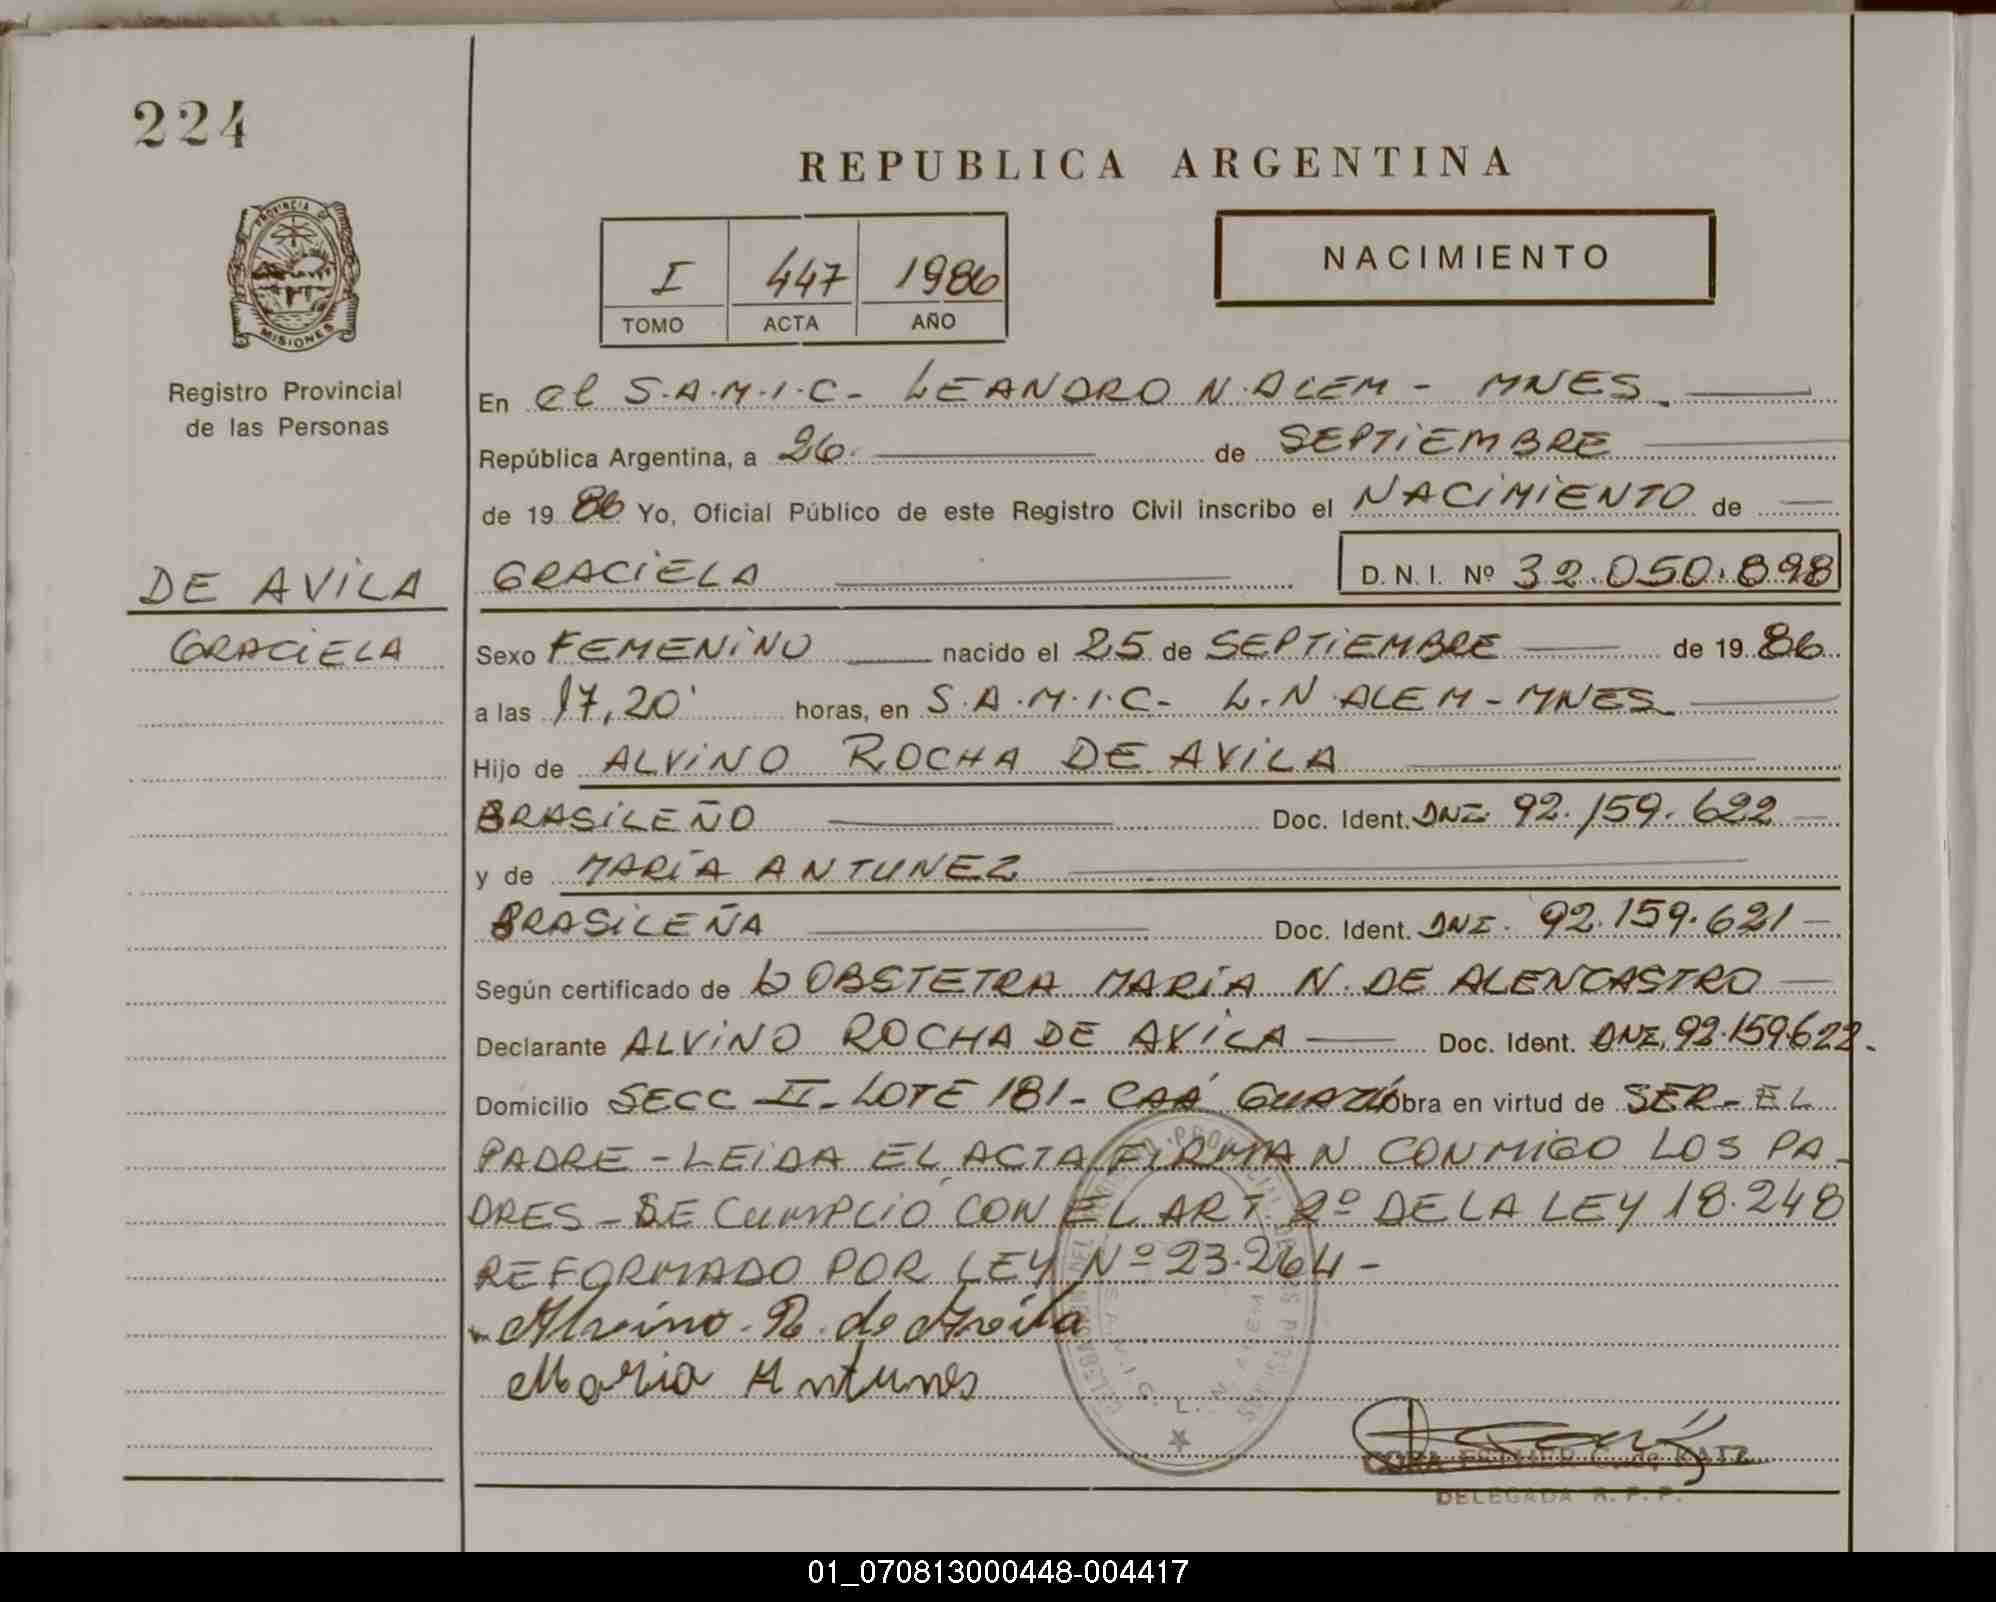 224
REPUBLICA ARGENTINA
PROVINCIA DE
MISIONES
Registro Provincial
de las Personas
I 447 1986
TOMO ACTA AÑO
NACIMIENTO
En el S.A.M.I.C- LEANDRO N. ALEM - MNES.
República Argentina, a 26. de SEPTIEMBRE
de 19 86 Yo, Oficial Público de este Registro Civil inscribo el NACIMIENTO de
DE AVILA
GRACIELA
GRACIELA D. N. I. Nº 32.050.898
Sexo FEMENINO nacido el 25 de SEPTIEMBRE de 19 86
a las 17,20' horas, en S.A.M.I.C- L.N ALEM - MNES
Hijo de ALVINO ROCHA DE AVILA
BRASILEÑO Doc. Ident. DNI. 92.159.622
y de MARÍA ANTUNEZ
BRASILEÑA Doc. Ident. DNI. 92.159.621
Según certificado de OBSTETRA MARIA N. DE ALENCASTRO
Declarante ALVINO ROCHA DE AVILA Doc. Ident. DNI. 92.159.622.
Domicilio SECC II - LOTE 181 - CAÁ GUAZÚ Obra en virtud de SER - EL
PADRE - LEIDA EL ACTA FIRMAN CONMIGO LOS PA-
DRES - SE CUMPLIÓ CON EL ART 2º DE LA LEY 18.248
REFORMADO POR LEY Nº 23.264 -
Alvino. R. de Avila
Maria Antunes
ESTHER G. de KATZ
DELEGADA R. P. P.
01_070813000448-004417